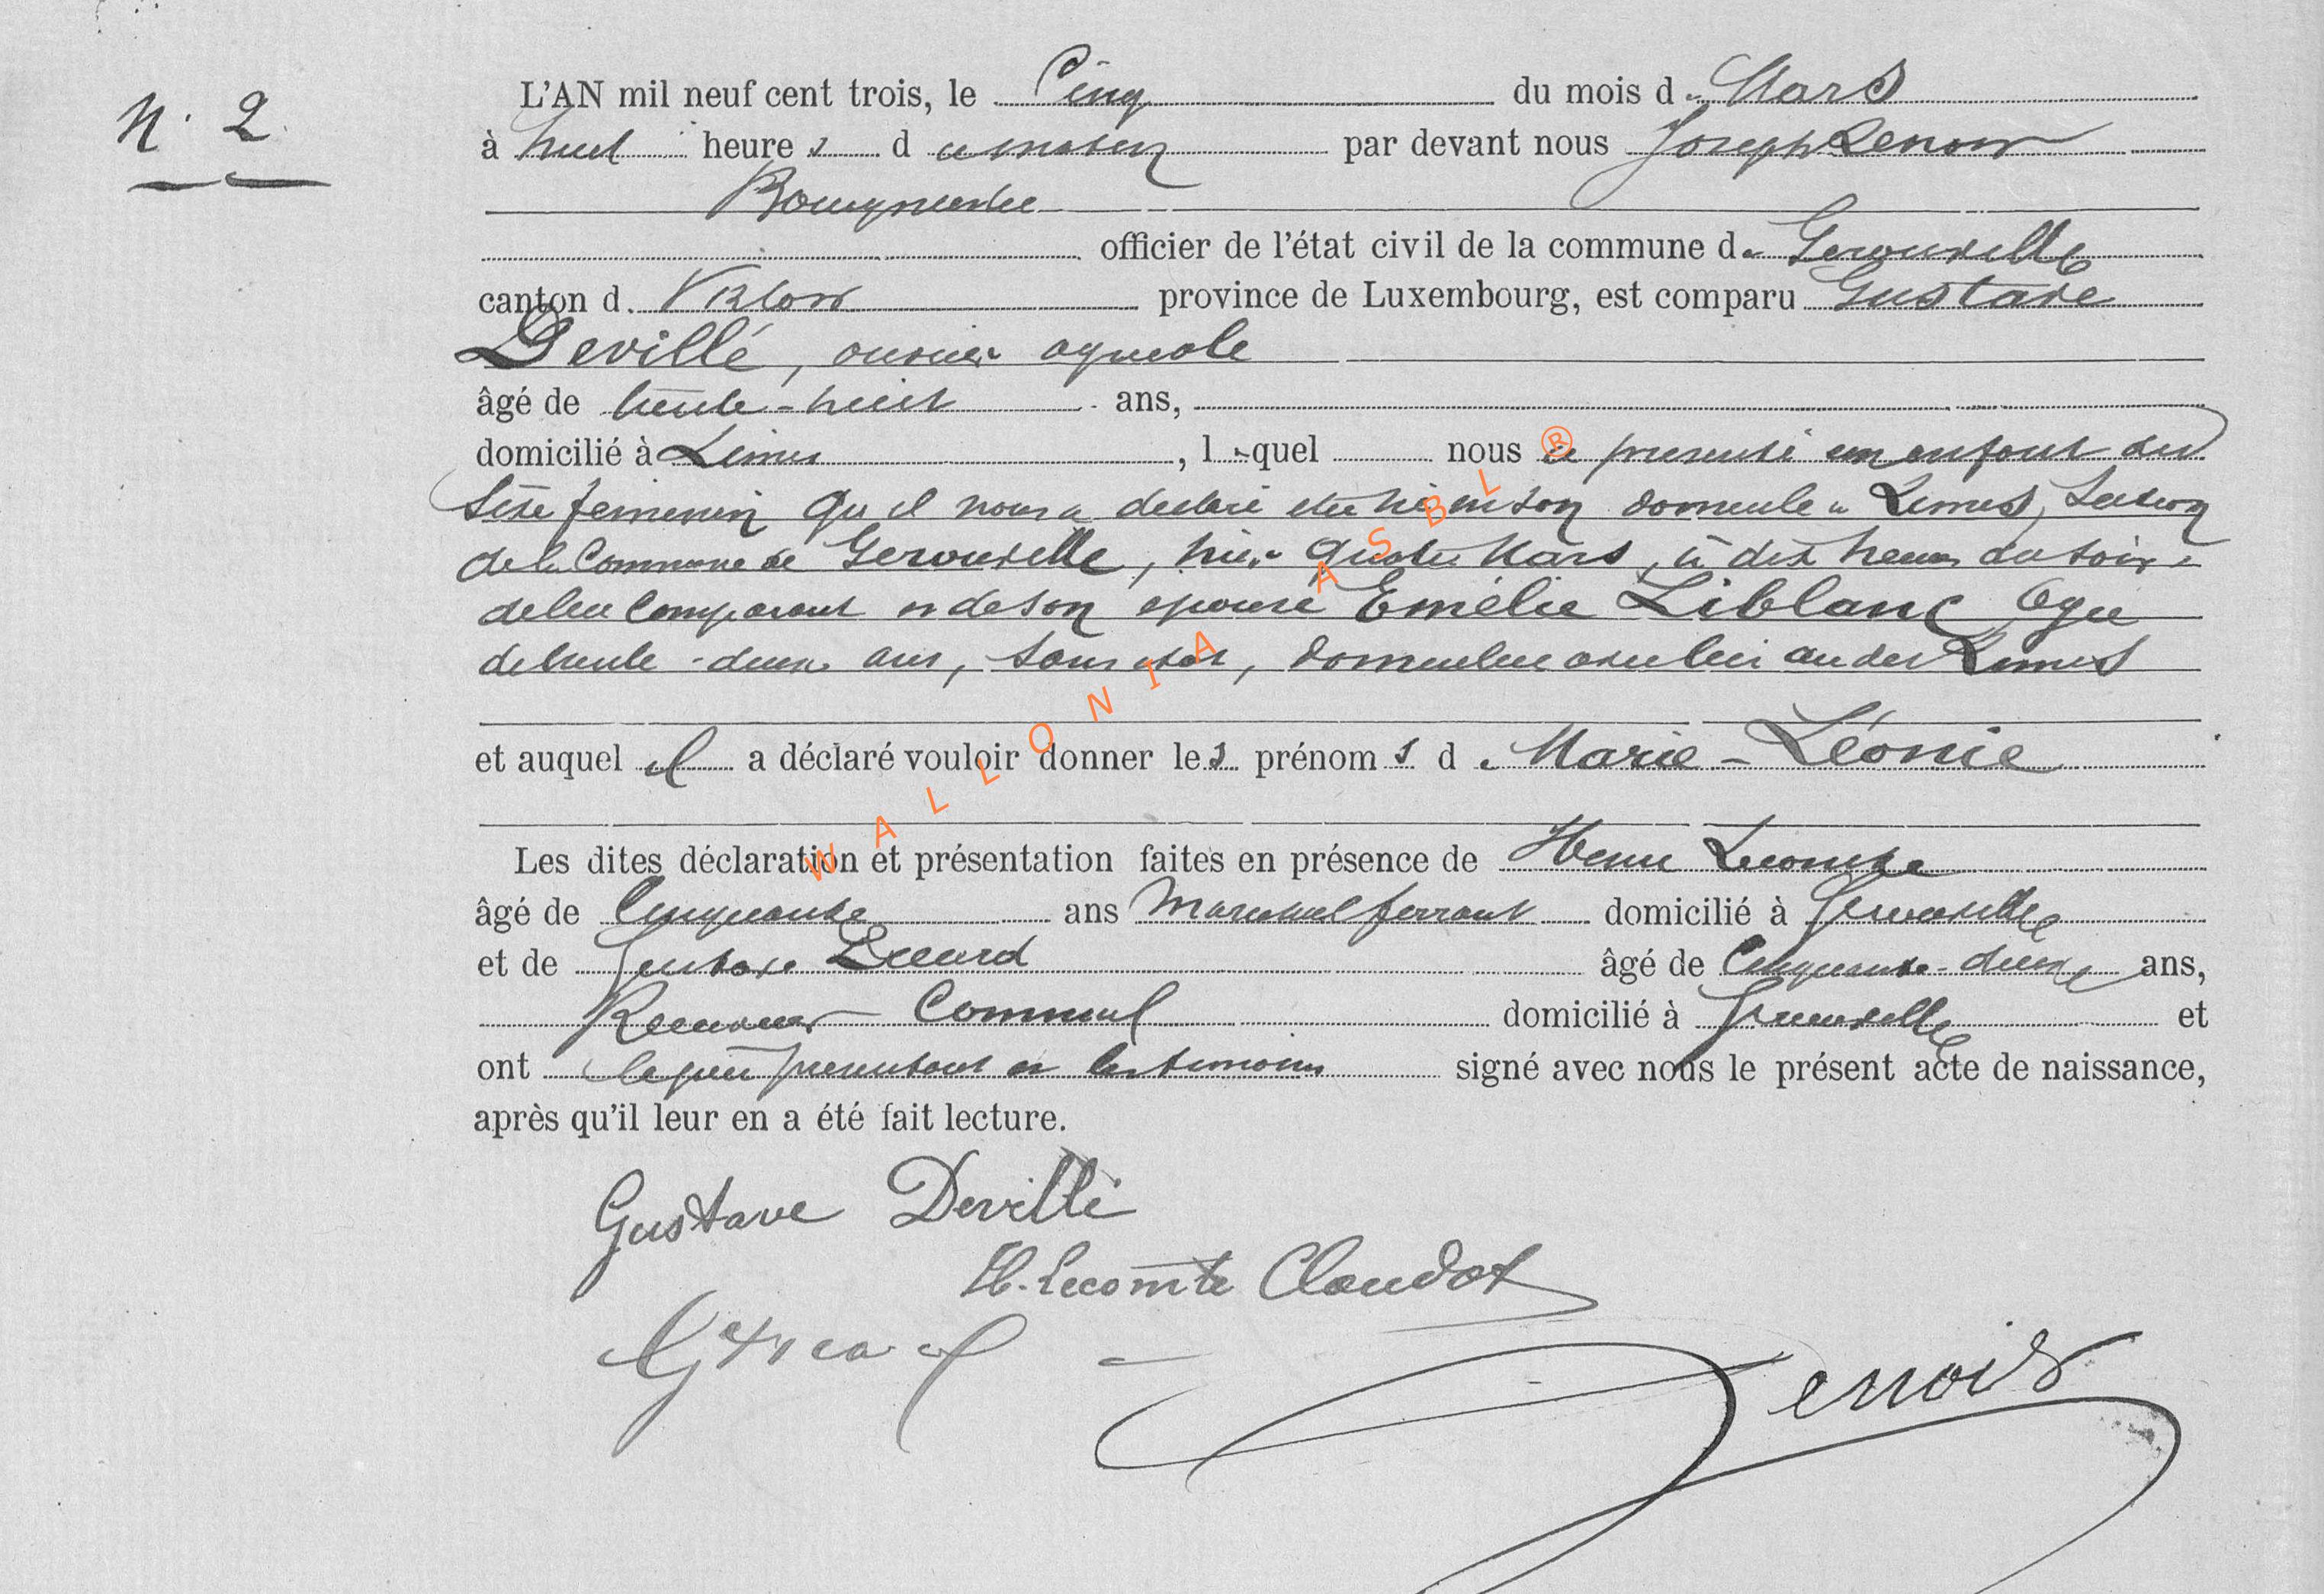 N. 2
L'AN mil neuf cent trois, le Cinq du mois de Mars
à huit heures du matin par devant nous Joseph Lenoir
Bourgmestre
officier de l'état civil de la commune de Gerouville
canton d. Virton province de Luxembourg, est comparu Gustave
Devillé, ouvrier agricole
âgé de trente-huit ans,
domicilié à Limes, lequel nous a présenté un enfant du
sexe féminin qu'il nous a déclaré être né en son domicile à Limes, section
de la Commune de Gerouville, hier quatre Mars, à dix heures du soir,
de lui comparant et de son épouse Emélie Liblanc, âgée
de trente-deux ans, sans état, domiciliée avec lui au dit Limes
et auquel il a déclaré vouloir donner les prénoms de Marie-Léonie
Les dites déclaration et présentation faites en présence de Henri Lecomte
âgé de Cinquante ans Maréchal ferrant domicilié à Gerouville
et de Gustave âgé de Cinquante-deux ans,
Receveur Communal domicilié à Gerouville et
ont le père présentant et les témoins signé avec nous le présent acte de naissance,
après qu'il leur en a été fait lecture.
Gustave Devillé
H. Lecomte Claudot
Lenoir
WALLONIA ASBL ®